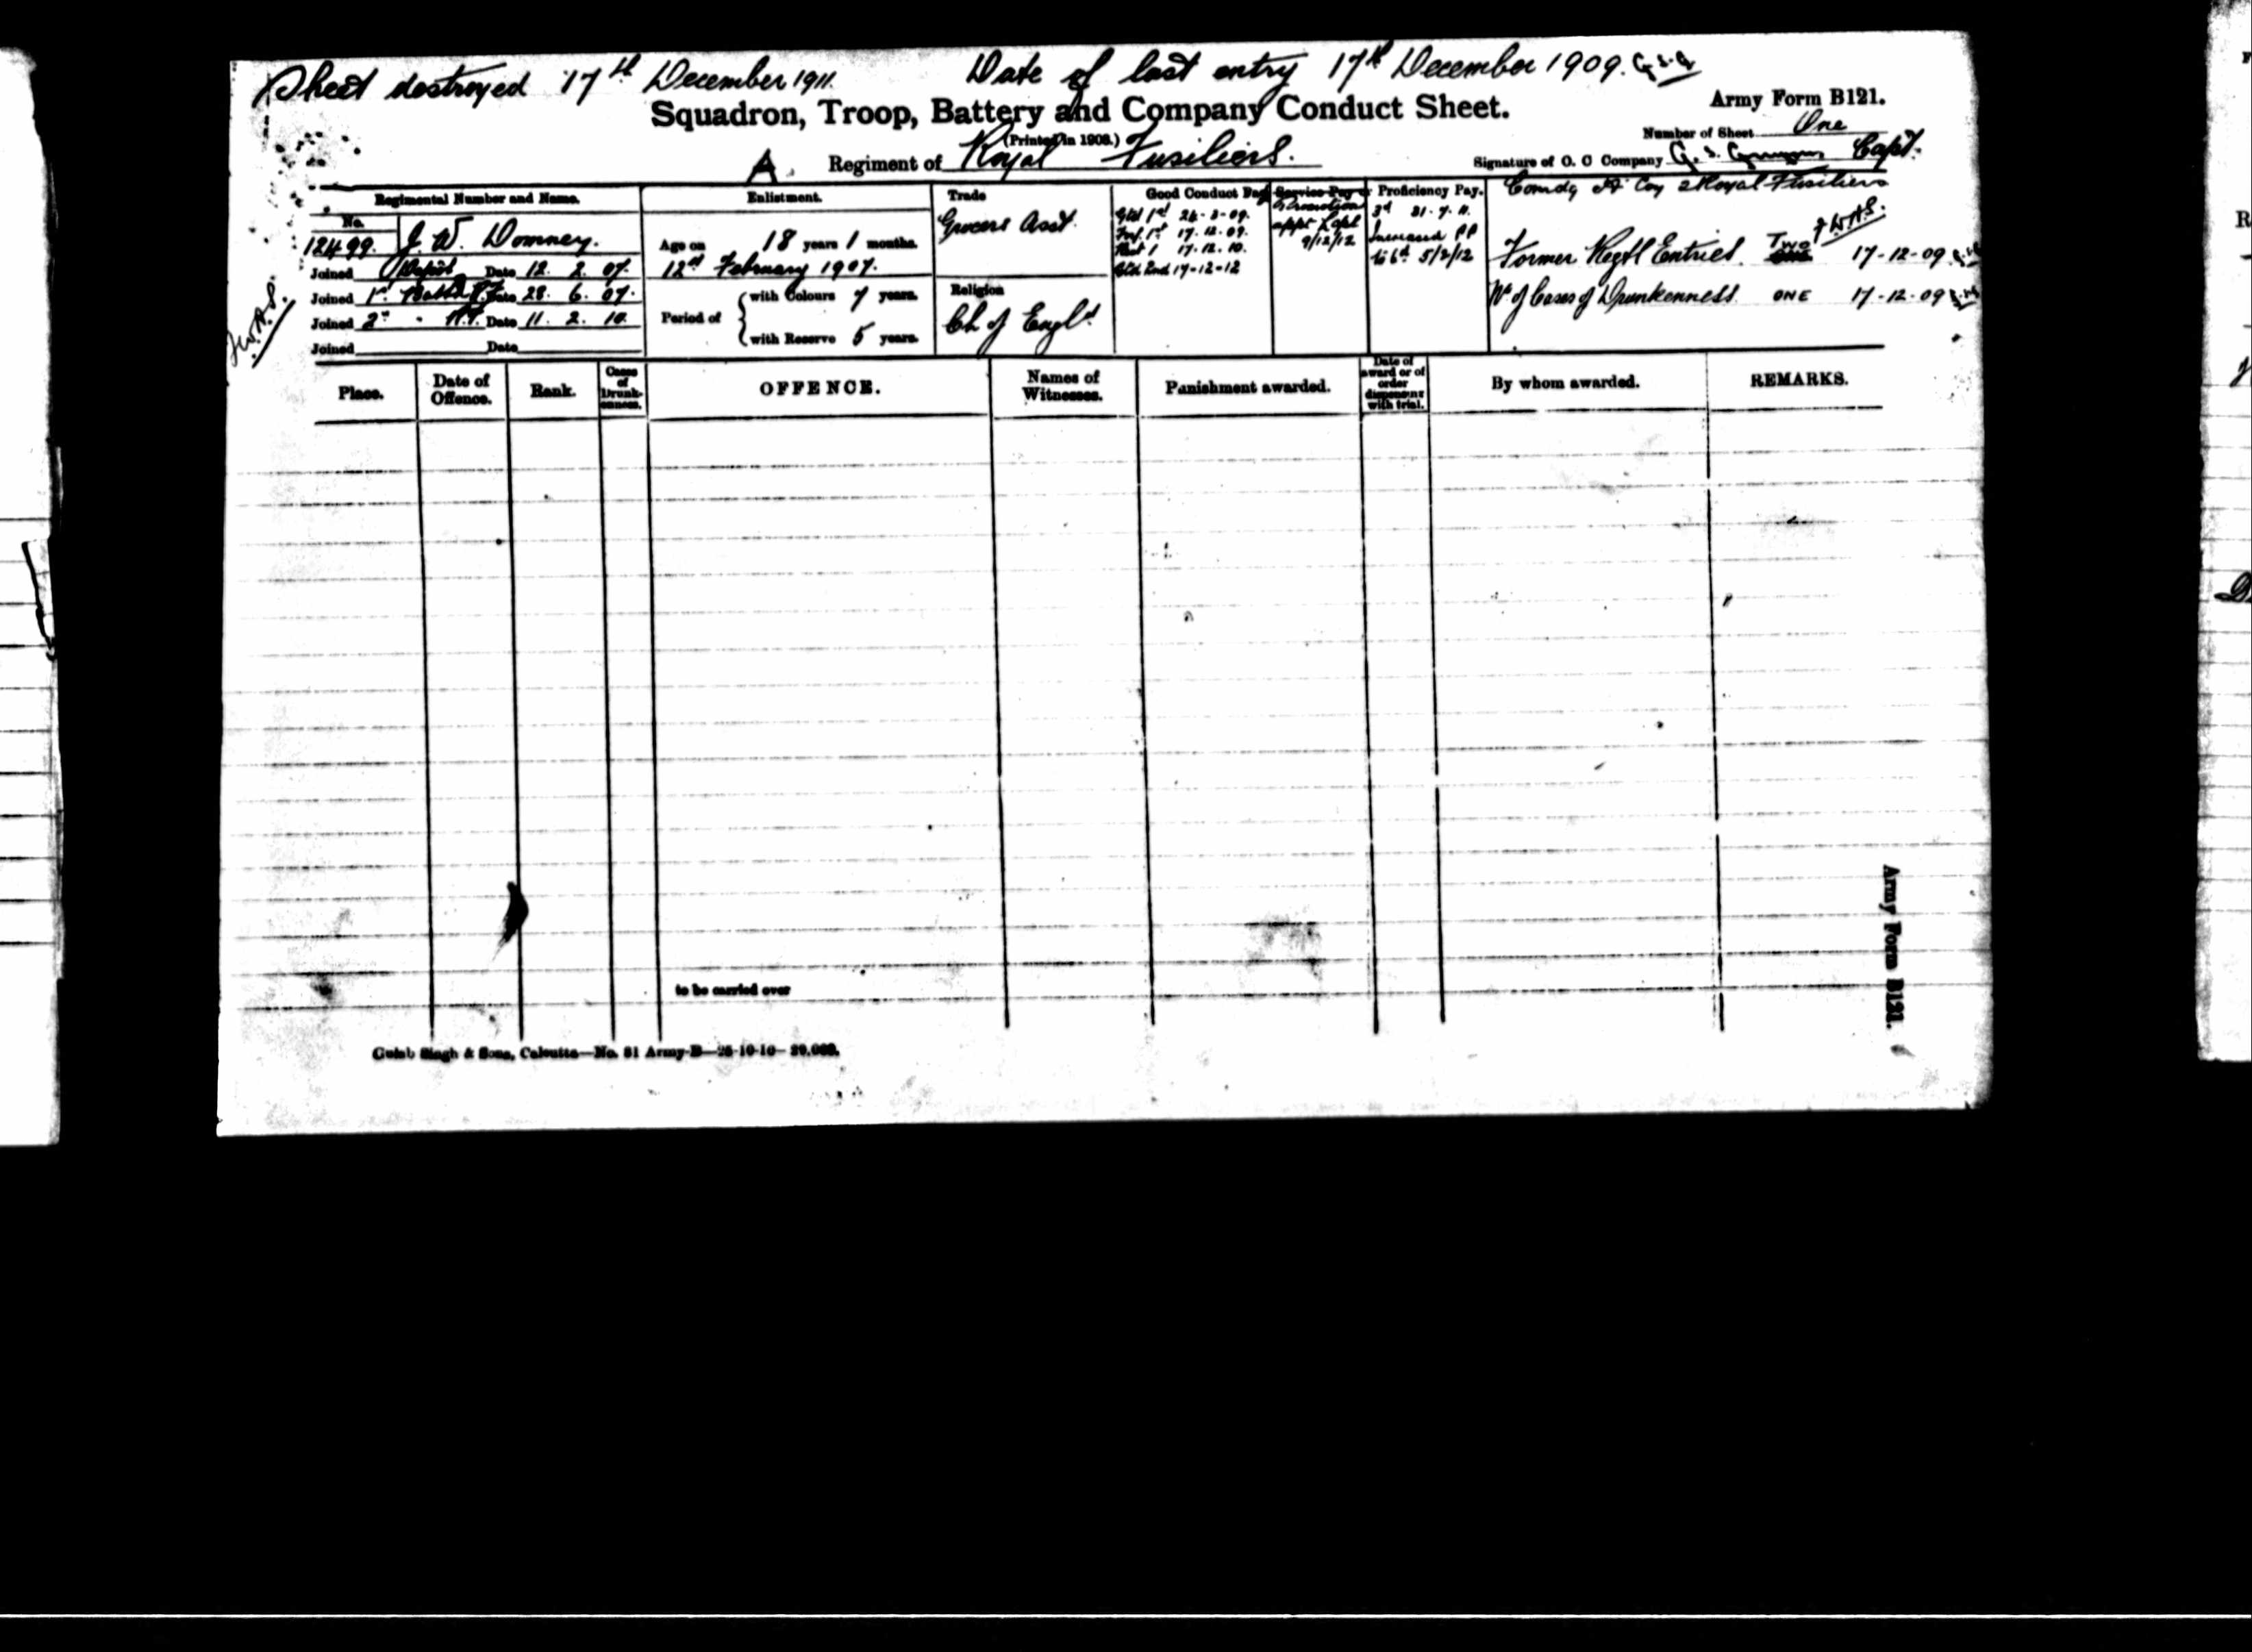 Sheet destroyed 17th December 1911. Date of last entry 17th December 1909.
Squadron, Troop, Battery and Company Conduct Sheet.
Army Form B121.
(Printed in 1908.)
Number of Sheet One
A. Regiment of Royal Fusiliers.
Signature of O. C Company G. S. Capt.
Comdg A Coy 2 Royal Fusiliers
Regimental Number and Name.
No.
12499. J. W. Domney.
Joined Depôt Date 12. 2. 07.
Joined 1st Battn R.F. Date 28. 6. 07.
Joined 2nd " R.F. Date 11. 2. 10.
Joined Date
Enlistment.
Age on 18 years 1 months.
12th February 1907.
Period of
with Colours 7 years.
with Reserve 5 years.
Trade
Grocers Asst.
Religion
Ch of Engld
Good Conduct Pay
Gtd 1st 24-3-09.
Forf. 1st 17.12.09.
Rest 1 17.12.10.
Gtd 2nd 17-12-12
Service Pay or Proficiency Pay.
Promotion
appt LCpl
9/12/12
3d 21.7.11.
Increased PP
to 6d 5/2/12
J.W.A.S.
Former Regtl Entries. Two one 17-12-09
No of Cases of Drunkenness. ONE 17-12-09
J.W.A.S.
Place.
Date of Offence.
Rank.
Cases of Drunk-enness.
OFFENCE.
Names of Witnesses.
Punishment awarded.
Date of award or of order dispensing with trial.
By whom awarded.
REMARKS.
to be carried over
Gulab Singh & Sons, Calcutta—No. 81 Army-B—25-10-10—
Army Form B121.